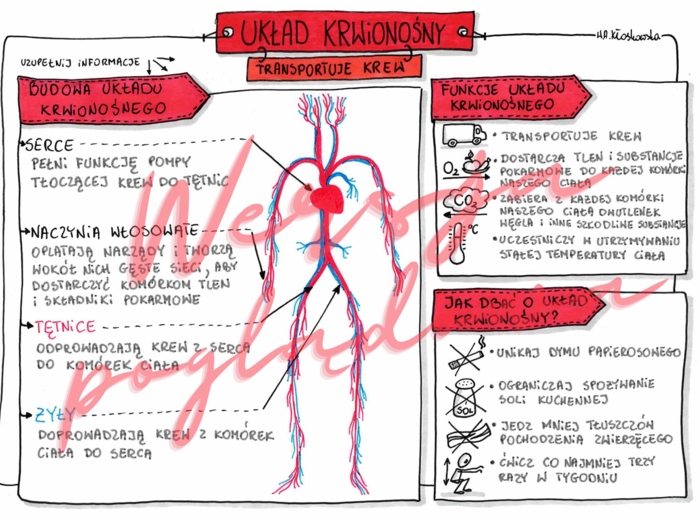 UKŁAD KRWIONOŚNY
TRANSPORTUJE KREW
H.A.Kłoskowska
UZUPEŁNIJ INFORMACJE
BUDOWA UKŁADU
KRWIONOŚNEGO
SERCE
PEŁNI FUNKCJĘ POMPY
TŁOCZĄCEJ KREW DO TĘTNIC
NACZYNIA WŁOSOWATE
OPLATAJĄ NARZĄDY I TWORZĄ
WOKÓŁ NICH GĘSTE SIECI, ABY
DOSTARCZYĆ KOMÓRKOM TLEN
I SKŁADNIKI POKARMOWE
TĘTNICE
ODPROWADZAJĄ KREW Z SERCA
DO KOMÓREK CIAŁA
ŻYŁY
DOPROWADZAJĄ KREW Z KOMÓREK
CIAŁA DO SERCA
FUNKCJE UKŁADU
KRWIONOŚNEGO
• TRANSPORTUJE KREW
O₂
• DOSTARCZA TLEN I SUBSTANCJE
POKARMOWE DO KAŻDEJ KOMÓRKI
NASZEGO CIAŁA
CO₂
• ZABIERA Z KAŻDEJ KOMÓRKI
NASZEGO CIAŁA DWUTLENEK
WĘGLA I INNE SZKODLIWE SUBSTANCJE
°C
• UCZESTNICZY W UTRZYMYWANIU
STAŁEJ TEMPERATURY CIAŁA
JAK DBAĆ O UKŁAD
KRWIONOŚNY?
• UNIKAJ DYMU PAPIEROSOWEGO
SÓL
• OGRANICZAJ SPOŻYWANIE
SOLI KUCHENNEJ
• JEDZ MNIEJ TŁUSZCZÓW
POCHODZENIA ZWIERZĘCEGO
• ĆWICZ CO NAJMNIEJ TRZY
RAZY W TYGODNIU
Wersja
poglądowa